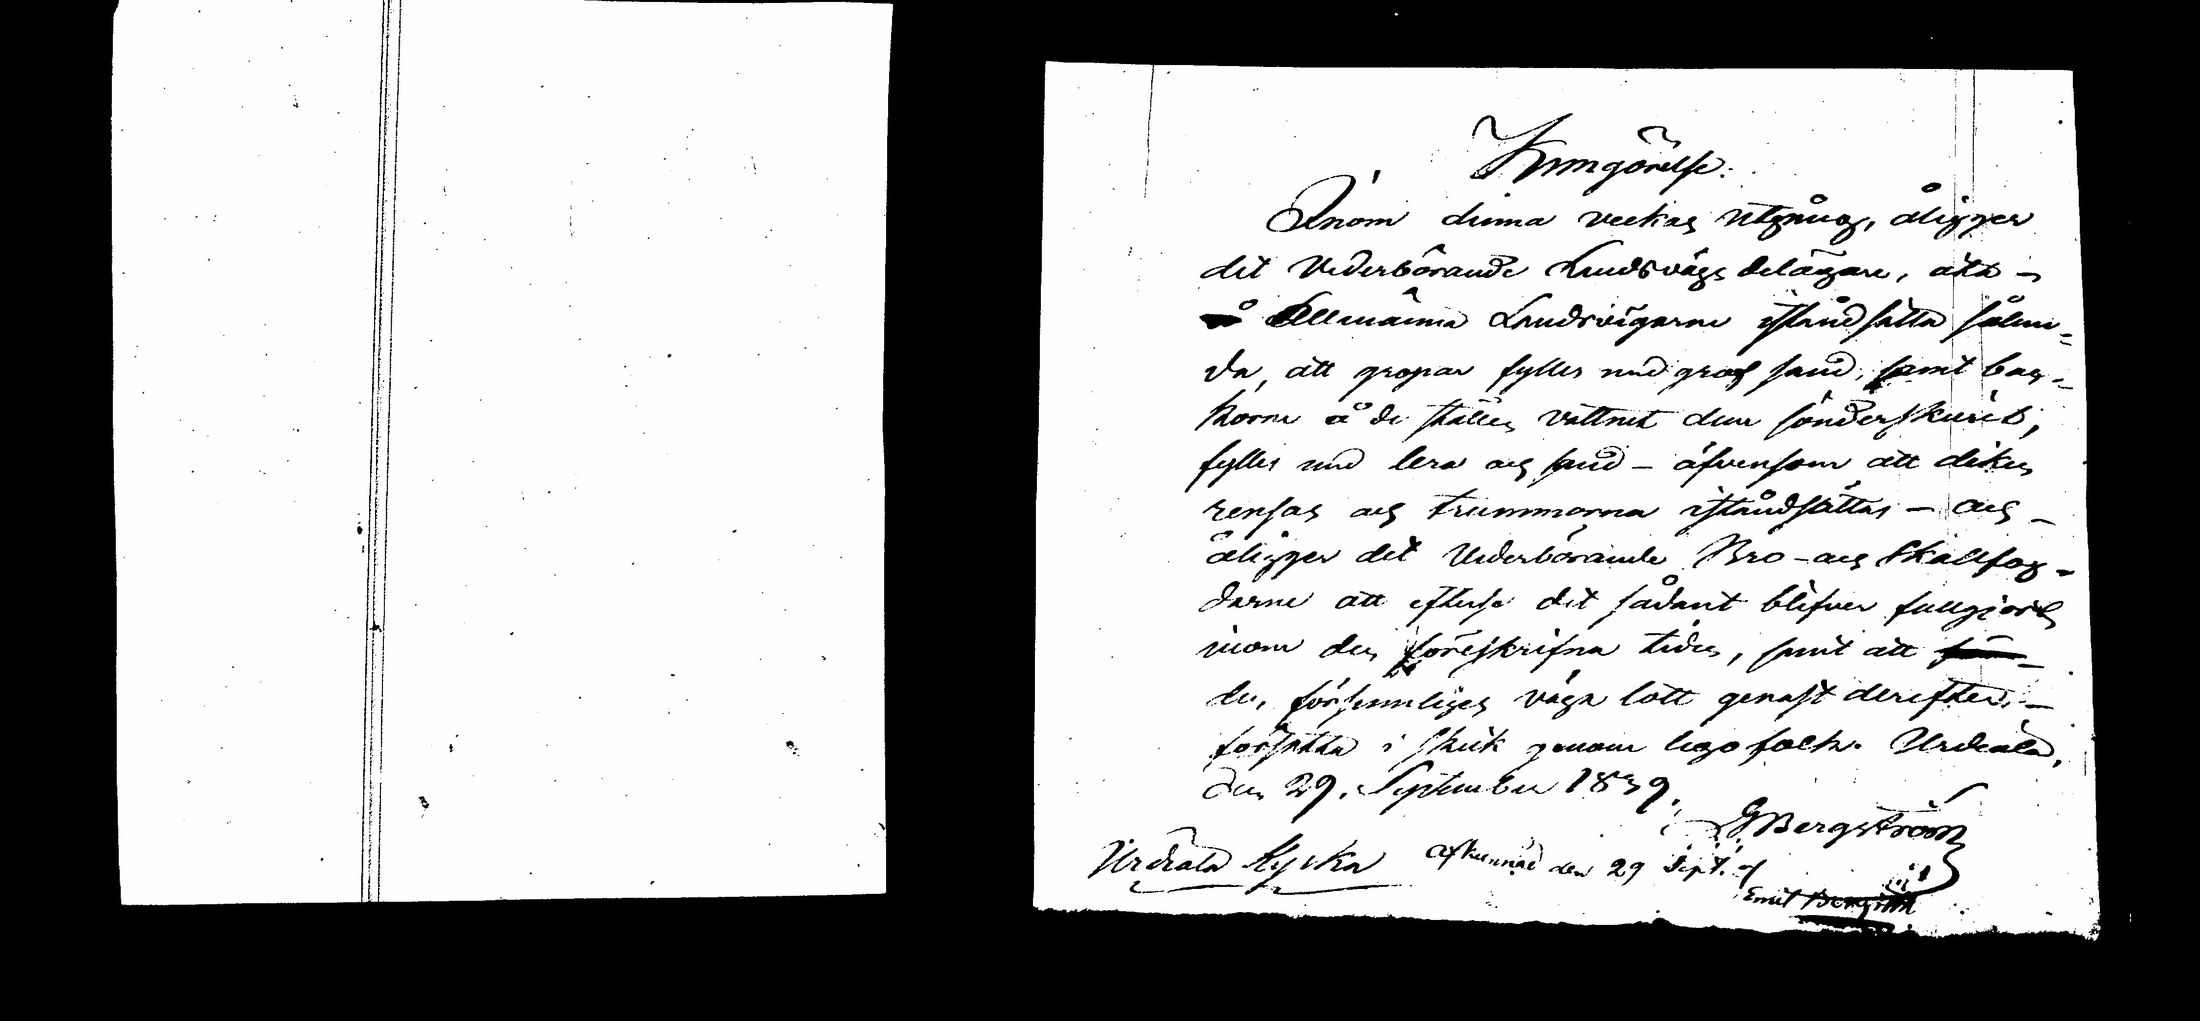 Kungörelse.
Inom denna veckas utgång, åligger
det Vederbörande Landsvägs delägare, att –
Allmänna Landsvägarne iståndsätta sålun=
da, att gropar fylles med grof sand, samt bac=
karne å de ställen vattnet dem sönderskurit,
fylles med lera och sand – äfvensom att diken
rensas och trummorna iståndsättas – och –
åligger det Vederbörande Bro- och Skallfog=
darne att efterse det sådant blifver fullgjort
inom den föreskrifna tiden, samt att
de, försumliges väga lott genast derefter, –
försätta i skick genom lego folk. Urdiala,
den 29. September 1839.
G Bergström
Urdiala Kyrka Afkunnad den 29 Sept. af
Emil